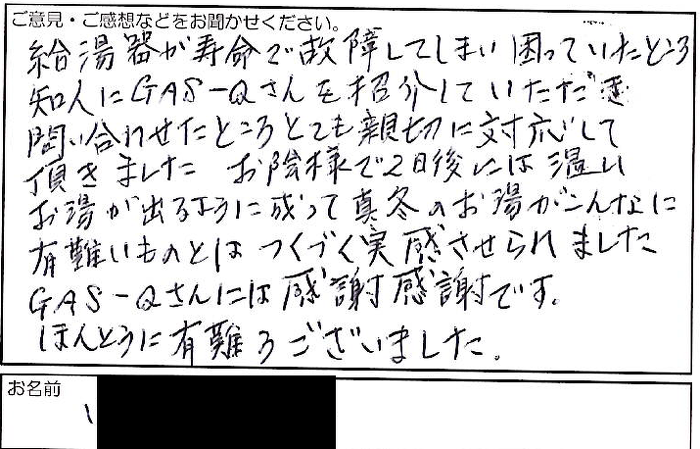 ご意見・ご感想などをお聞かせください。
給湯器が寿命で故障してしまい困っていたところ
知人にGAS-Qさんを紹介していただき
問い合わせたところとても親切に対応して
頂きました お陰様で2日後には温い
お湯が出るように成って真冬のお湯がこんなに
有難いものとはつくづく実感させられました
GAS-Qさんには感謝感謝です。
ほんとうに有難うございました。
お名前